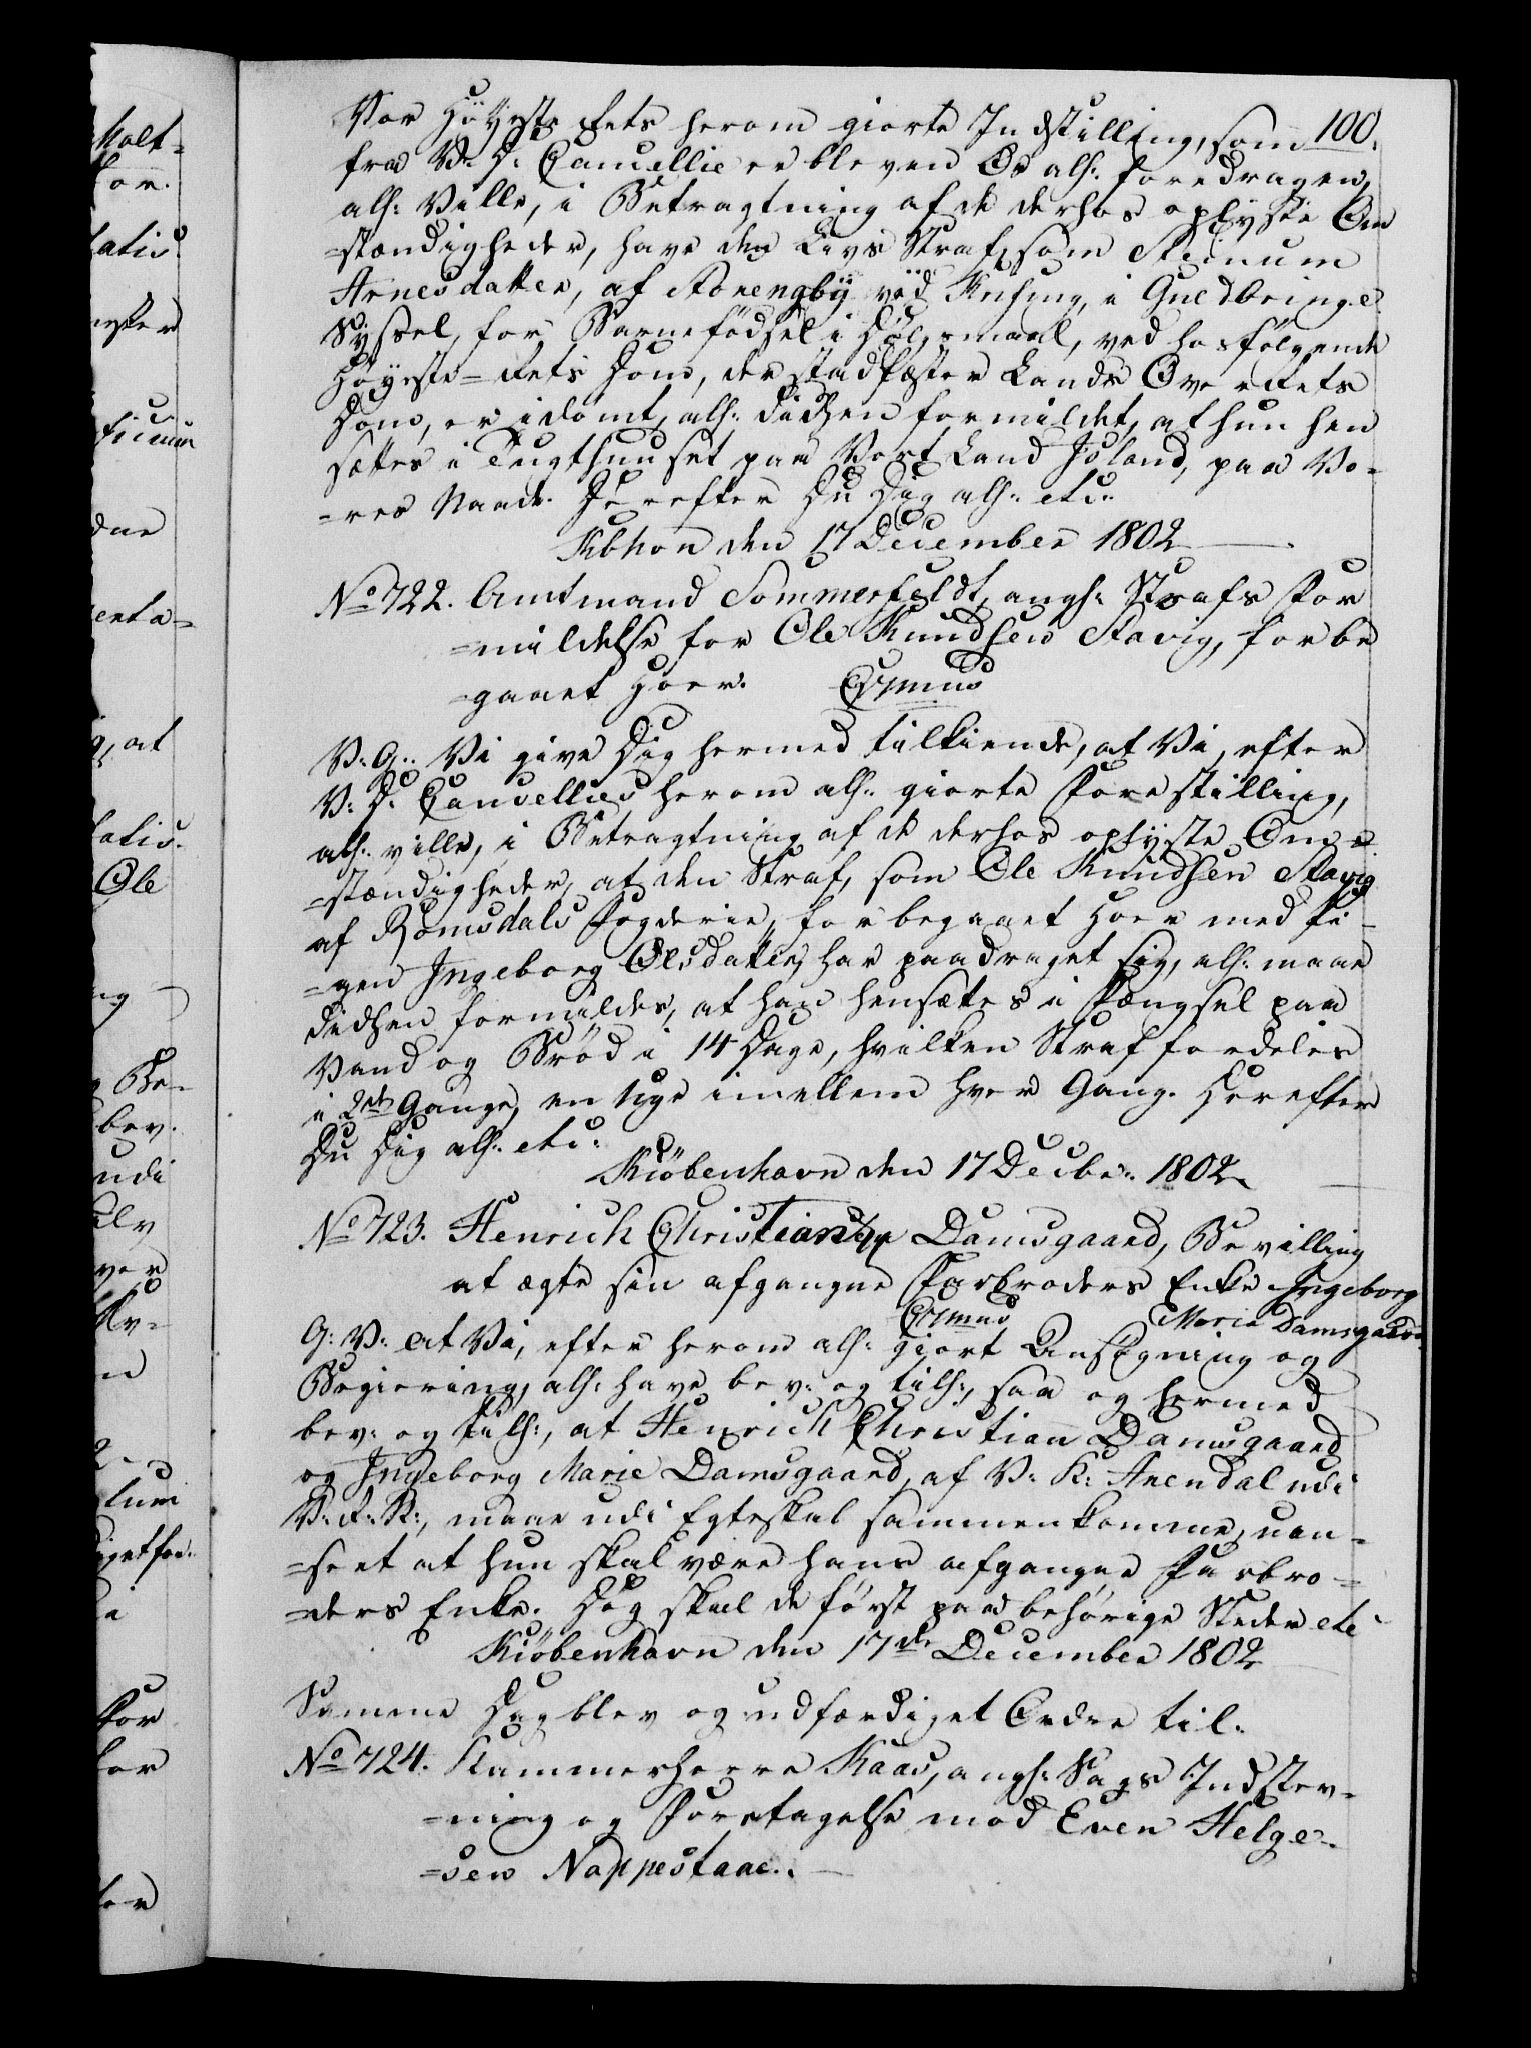 100.
Vor Høyeste Rets herom giorte Indstilling, som
fra V. D. Cancellie er bleven Os alh: foredragen,
alh: Ville, i Betragtning af de derhos oplyste Om
=stændigheder, have den Livs Straf, som Steinum
Arnesdatter, af ved i Guldbringe
Syssel, for Barnefødsel i Dølgsmaal, ved hosfølgende
Høyeste=Rets Dom, der stadfæster Lands Over Rets
Dom, er idømt, alh: didhen formildet, at hun hen
sættes i Tugthuuset paa Vort Land Island, paa Vo-
=res Naade. Derefter Du Dig alh: etc:
Kbhvn den 17 December 1802
No 722. Amtmand Sommerfeldt, angh: Strafs For
=mildelse for Ole Knudsen Stavig, for be
=gaaet Hoer. Gymus
V. G.: Vi give Dig hermed tilkiende, at Vi, efter
V: D: Cancellies herom alh: giorte Forestilling,
alh: ville, i Betragtning af de derhos oplyste Om=
=stændigheder, at den Straf, som Ole Knudsen Stavig
af Romsdals Fogderie, for begaaet Hoer med Pi-
=gen Ingeborg Olsdatter, har paadraget sig, alh: maae
didhen formildes, at han hensættes i Fængsel paa
Vand og Brød i 14 Dage, hvilken Straf fordeles
i 2de Gange, en Uge imellem hver Gang. Derefter
Du Dig alh: etc:
Kiøbenhavn den 17 Decbr: 1802
No 723. Henrich Christian Damsgaard, Bevilling
at ægte sin afgangne Farbroders Enke Ingeborg
Gymus Marie Damsgaard.
G: V: at Vi, efter herom alh: giort Ansøgning og
Begiering, alh: have bev: og tilh:, saa og hermed
bev: og tilh:, at Henrich Christian Damsgaard
og Ingeborg Marie Damsgaard, af V: K: Arendal udi
V: R: N:, maae udi Egteskab sammenkomme, uan-
=seet at hun skal være hans afgangne Farbro-
=ders Enke. Dog skal de først paa behørige Steder etc
Kiøbenhavn den 17de December 1802
Samme Dag blev og udfærdiget Ordre til:
No 724. Kammerherre Kaas, angh: Sags Indstev-
=ning og Foretagelse mod Even Helge-
=sen Nappestaae.